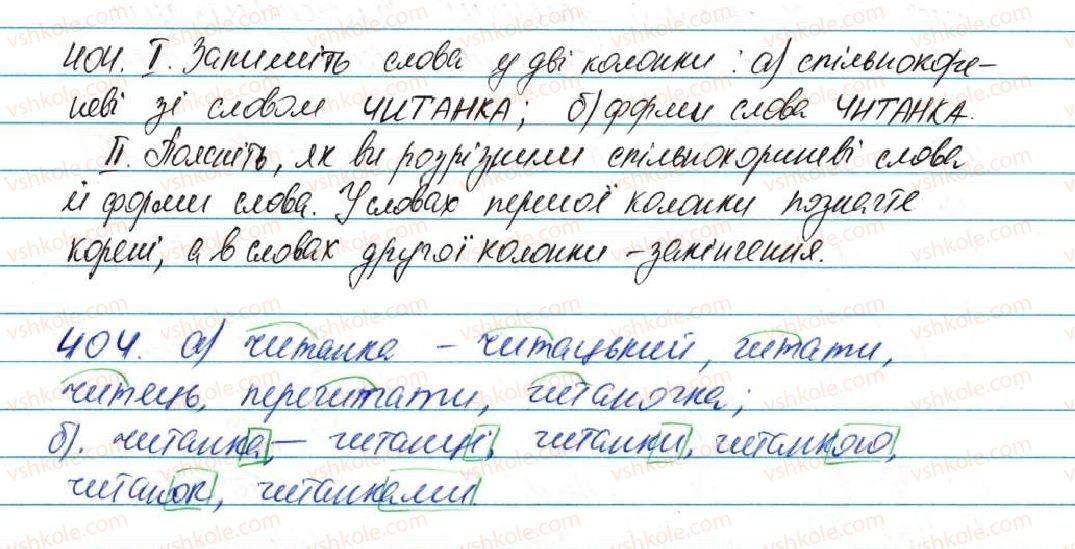 404. I. Запишіть слова у дві колонки: а) спільнокоре-
неві зі словом ЧИТАНКА; б) форми слова ЧИТАНКА.
II. Поясніть, як ви розрізнили спільнокореневі слова
й форми слова. У словах першої колонки позначте
корені, а в словах другої колонки - закінчення.
404. а) читанка - читацький, читати,
читець, перечитати, читаночка;
б). читанка, - читанці, читанки, читанкою,
читанок, читанками.